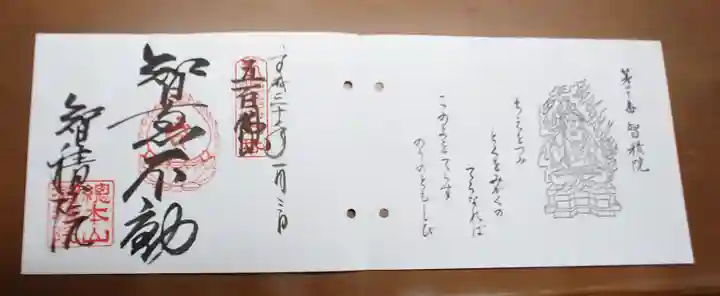 智積院
ちゑをつみ
とくをみがくの
てらなれば
このよをてらす
のりのともしび
平成三十一年一月三日
五百佛
智立不動
智積院
總本山